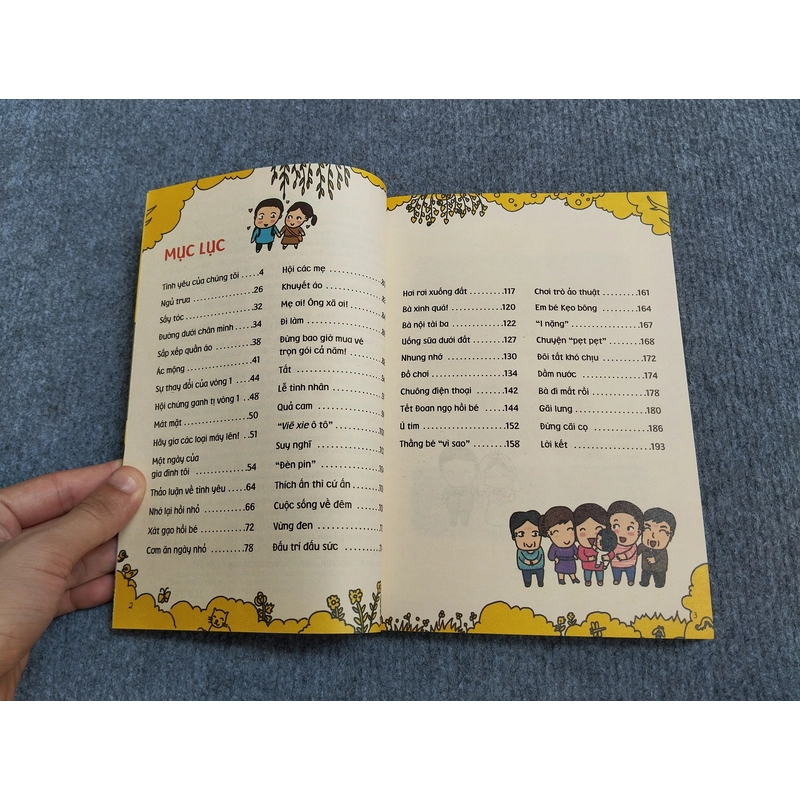 MỤC LỤC
Tình yêu của chúng tôi .....4
Ngủ trưa ................26
Sấy tóc ..................32
Đường dưới chân mình ....34
Sắp xếp quần áo .........38
Ác mộng ................41
Sự thay đổi của vòng 1 ...44
Hội chứng ganh tị vòng 1 .48
Mát mặt .................50
Hãy gia các loại máy lên! .51
Một ngày của
gia đình tôi ..............54
Thảo luận về tình yêu ....64
Nhớ lại hồi nhỏ ..........66
Xát gạo hồi bé ...........72
Cơm ăn ngày nhỏ ........78
Hội các mẹ
Khuyết áo
Mẹ ơi! Ông xã ơi!
Đi làm
Đừng bao giờ mua vé
trọn gói cả năm!
Tất
Lễ tình nhân
Quả cam
“Viē xie ô tô”
Suy nghĩ
“Đèn pin”
Thích ấn thì cứ ấn
Cuộc sống về đêm
Vừng đen
Đấu trí đấu sức
2
Hơi rơi xuống đất ........117
Bà xinh quá! ............120
Bà nội tài ba ............122
Uống sữa dưới đất .......127
Nhung nhớ ..............130
Đồ chơi .................134
Chuông điện thoại .......142
Tết Đoan ngọ hồi bé .....144
Ú tim ..................152
Thằng bé “vì sao” ........158
Chơi trò ảo thuật ........161
Em bé Kẹo bông .........164
“I nặng” ................167
Chuyện “pẹt pẹt” ........168
Đôi tất khó chịu .........172
Dầm nước ..............174
Bà đi mất rồi ............178
Gãi lưng ...............180
Đừng cãi cọ ............186
Lời kết .................193
3